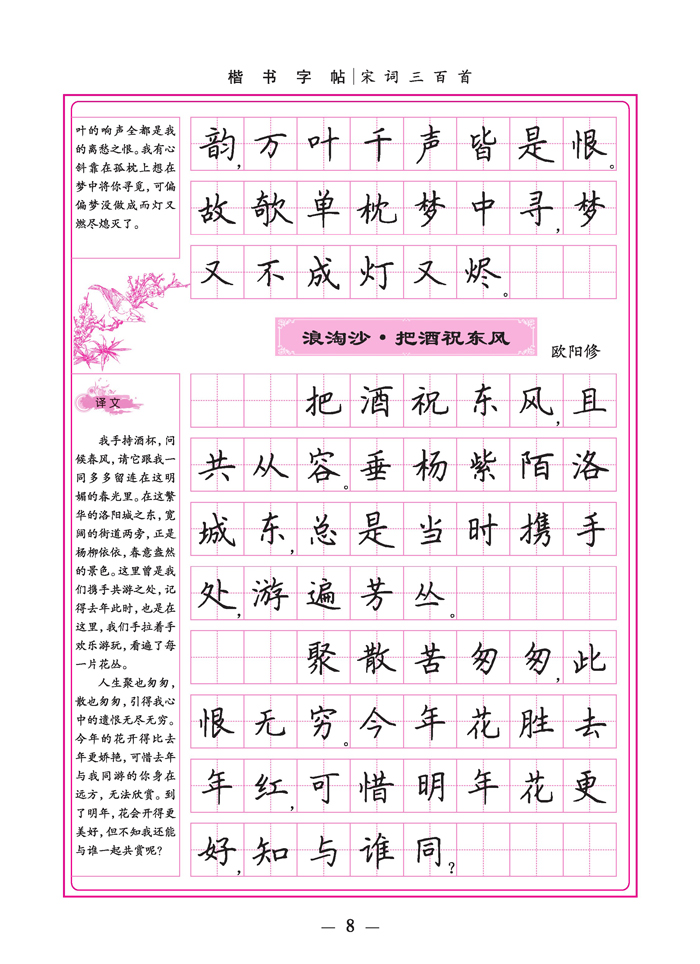 楷书字帖|宋词三百首
叶的响声全都是我
的离愁之恨。我有心
斜靠在孤枕上想在
梦中将你寻觅，可偏
偏梦没做成而灯又
燃尽熄灭了。
韵，万叶千声皆是恨。
故欹单枕梦中寻，梦
又不成灯又烬。
浪淘沙·把酒祝东风
欧阳修
译文
我手持酒杯，问
候春风，请它跟我一
同多多留连在这明
媚的春光里。在这繁
华的洛阳城之东，宽
阔的街道两旁，正是
杨柳依依，春意盎然
的景色。这里曾是我
们携手共游之处，记
得去年此时，也是在
这里，我们手拉着手
欢乐游玩，看遍了每
一片花丛。
人生聚也匆匆，
散也匆匆，引得我心
中的遗恨无尽无穷。
今年的花开得比去
年更娇艳，可惜去年
与我同游的你身在
远方，无法欣赏。到
了明年，花会开得更
美好，但不知我还能
与谁一起共赏呢？
把酒祝东风，且
共从容。垂杨紫陌洛
城东，总是当时携手
处，游遍芳丛。
聚散苦匆匆，此
恨无穷。今年花胜去
年红，可惜明年花更
好，知与谁同？
— 8 —